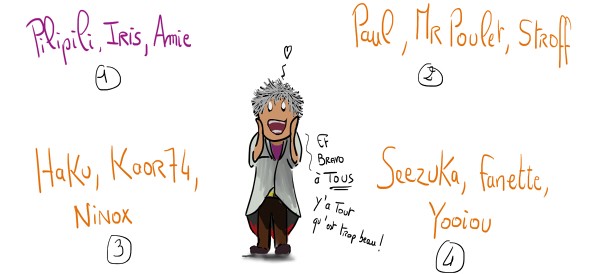 Pilipili, Iris, Amie
1
Paul, Mr Poulet, Stroff
2
Haku, Koor74,
Ninox
3
Et
Bravo
à Tous
Y'a Tout
qu'est trop beau !
Seezuka, Fanette,
Yooiou
4